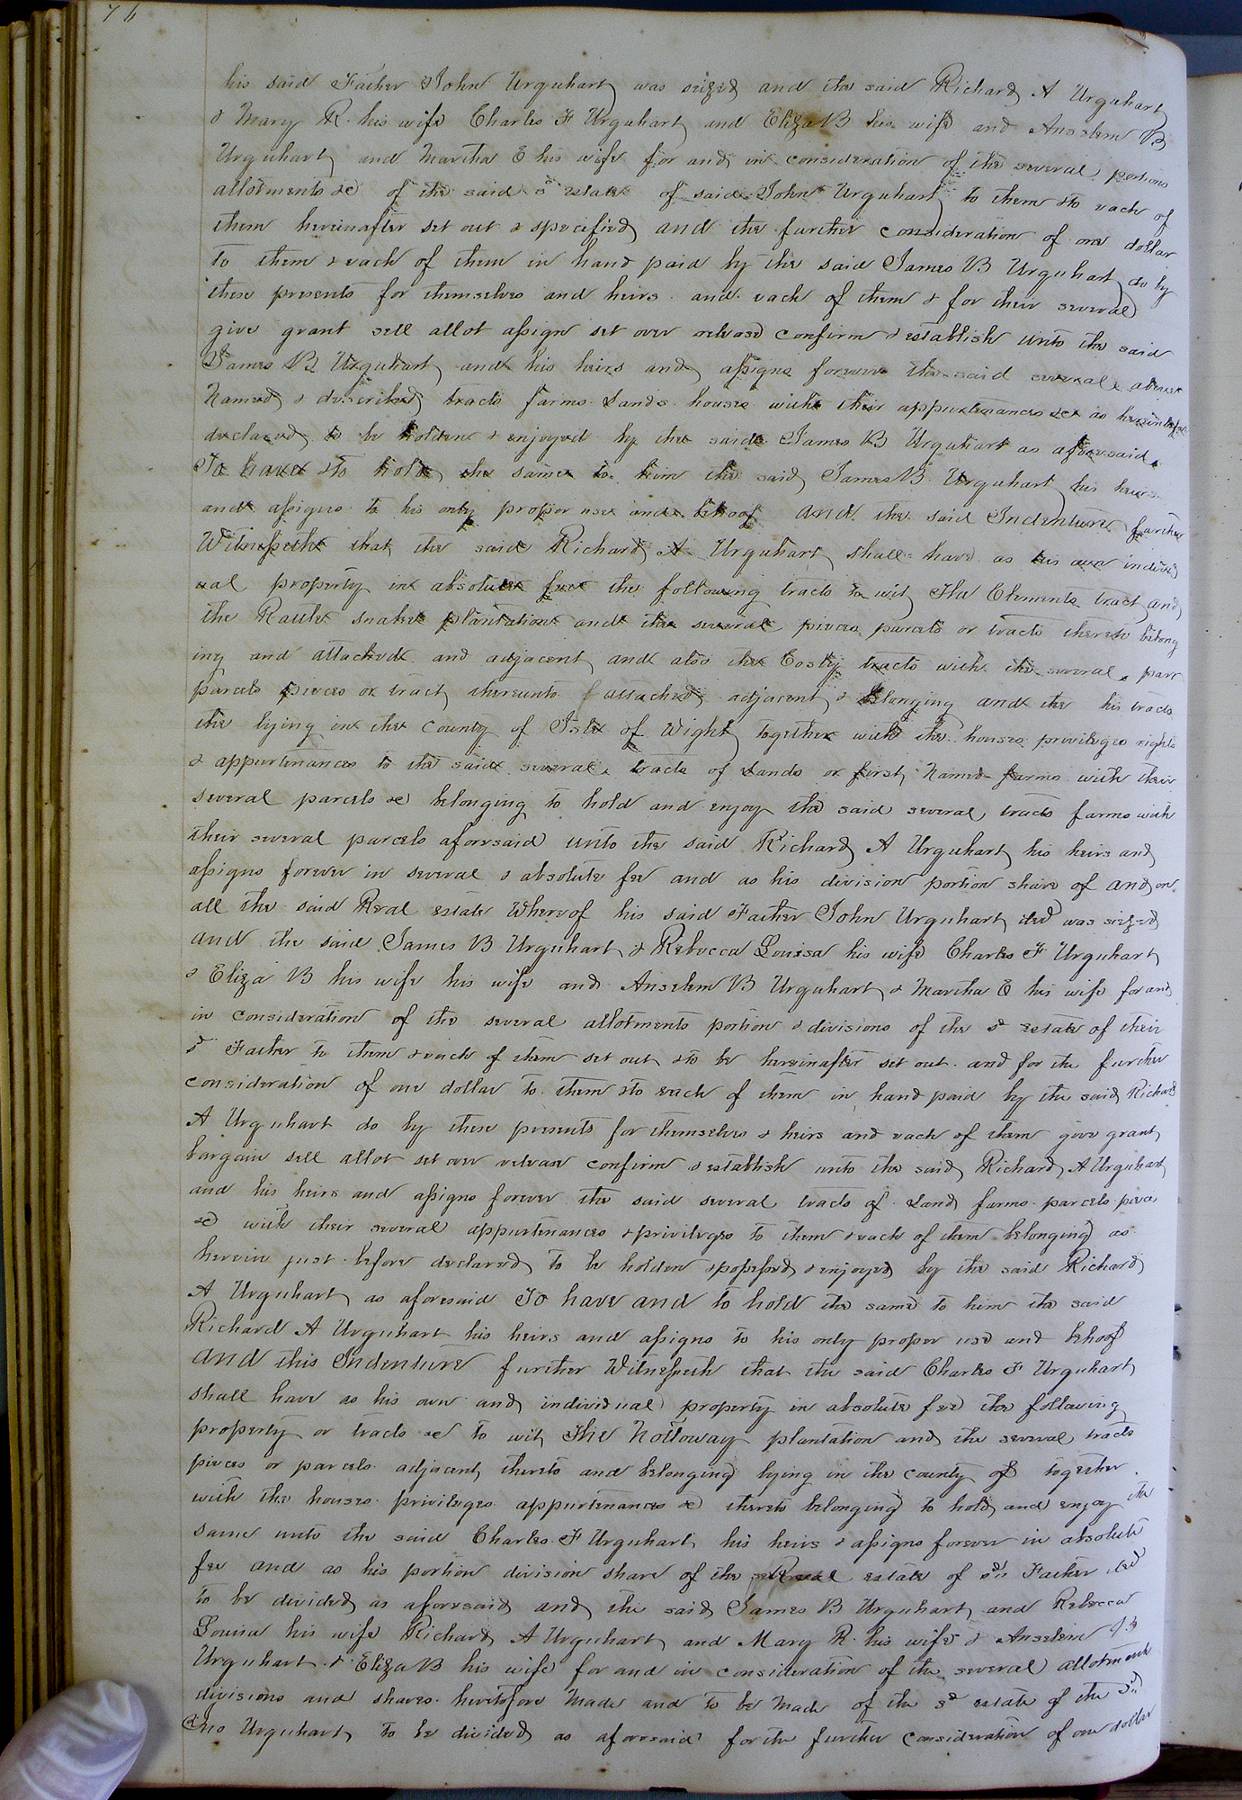 76
his said Father John Urquhart was seized and the said Richard A Urquhart
& Mary R. his wife Charles F Urquhart and Eliza B his wife and Anselm B
Urquhart and Martha E his wife for and in consideration of the several portions
allotments &c of the said sd estate of said John Urquhart to them & to each of
them hereinafter set out & specified and the further consideration of one dollar
to them & each of them in hand paid by the said James B Urquhart do by
these presents for themselves and heirs and each of them & for their several
give grant sell allot assign set over release confirm & establish unto the said
James B Urquhart and his heirs and assigns forever the said several above
Named & described tracts farms Lands houses with their appurtenances &c as hereinbefore
declared to be holden & enjoyed by the said James B Urquhart as aforesaid
To have & to hold the same to him the said James B Urquhart his heirs
and assigns to his only proper use and behoof and the said Indenture further
Witnesseth that the said Richard A Urquhart shall have as his own individ
ual property in absolute fee the following tracts to wit The Clements tract and
the Rattle snake plantation and the several pieces parcels or tracts thereto belong
ing and attached and adjacent and also the tracts with the several
parcels pieces or tract thereunto attached adjacent & belonging and the his tracts
the lying in the County of Isle of Wight together with the houses privileges rights
& appurtenances to the said several tracts of Lands or first Named farms with their
several parcels &c belonging to hold and enjoy the said several tracts farms with
their several parcels aforesaid unto the said Richard A Urquhart his heirs and
assigns forever in several & absolute fee and as his division portion share of and on
all the said Real estate Whereof his said Father John Urquhart decd was seized
and the said James B Urquhart & Rebecca Louisa his wife Charles F Urquhart
& Eliza B his wife his wife and Anselm B Urquhart & Martha E his wife for and
in consideration of the several allotments portion & divisions of the sd estate of their
sd Father to them & each of them set out & to be hereinafter set out and for the further
consideration of one dollar to them & to each of them in hand paid by the said Richard
A Urquhart do by these presents for themselves & heirs and each of them give grant
bargain sell allot set over release confirm & establish unto the said Richard A Urquhart
and his heirs and assigns forever the said several tracts of Land farms parcels pieces
&c with their several appurtenances & privileges to them & each of them belonging as
herein just before declared to be holden & possessed & enjoyed by the said Richard
A Urquhart as aforesaid To have and to hold the same to him the said
Richard A Urquhart his heirs and assigns to his only proper use and behoof
and this Indenture further Witnesseth that the said Charles F Urquhart
shall have as his own and individual property in absolute fee the following
property or tracts &c to wit The Nottoway plantation and the several tracts
pieces or parcels adjacent thereto and belonging lying in the county of together
with the houses privileges appurtenances &c thereto belonging to hold and enjoy the
same unto the said Charles F Urquhart his heirs & assigns forever in absolute
fee and as his portion division share of the Real estate of sd Father decd
to be divided as aforesaid and the said James B Urquhart and Rebecca
Louisa his wife Richard A Urquhart and Mary R. his wife & Anselm B
Urquhart & Eliza B his wife for and in consideration of the several allotments
divisions and shares heretofore Made and to be Made of the sd estate of the sd
Jno Urquhart to be divided as aforesaid for the further consideration of one dollar